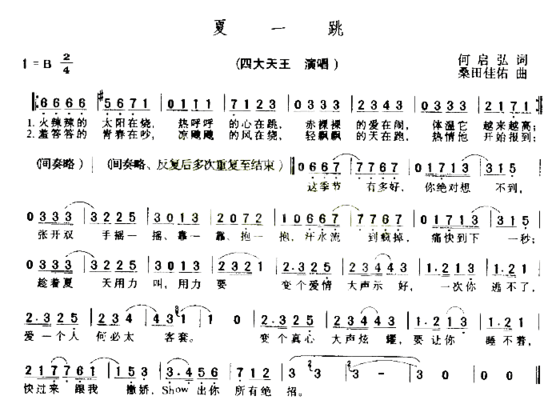 夏 一 跳
1=B 2/4
(四大天王 演唱)
何启弘 词
桑田佳佑 曲
6666 5671 0111 7123 0333 2325 0333 2171
1.火辣辣的 太阳在烧, 热呼呼 的心在跳, 赤裸裸 的爱在闹, 体温它 越来越高;
2.羞答答的 青春在吵, 凉飕飕 的风在绕, 轻飘飘 的天在跑, 热情他 开始报到;
(间奏略) (间奏略、反复后多次重复至结束) 0667 7767 0713 315
这季节 有多好, 你绝对想 不到,
0333 3225 3013 2072 0667 7767 0713 315
张开双 手摇一 摇、靠一 靠、抱一 抱, 汗水流 到疯掉, 痛快到下 一秒;
0333 3225 3013 2321 0667 7767 1·213 1·213
趁着夏 天用力 叫, 用力 要 变个爱情 大声示 好, 一次你 逃不了,
2·325 2·325 4·323 1 1 0 2·325 2·325 1·213 1·213
爱一个人 何必太 客套。 变个真心 大声炫 耀, 要让你 睡不着,
217761 1713 4·323 1 3 3 3 0
快过来 跟我 撒娇, Show出你 所有绝 招。